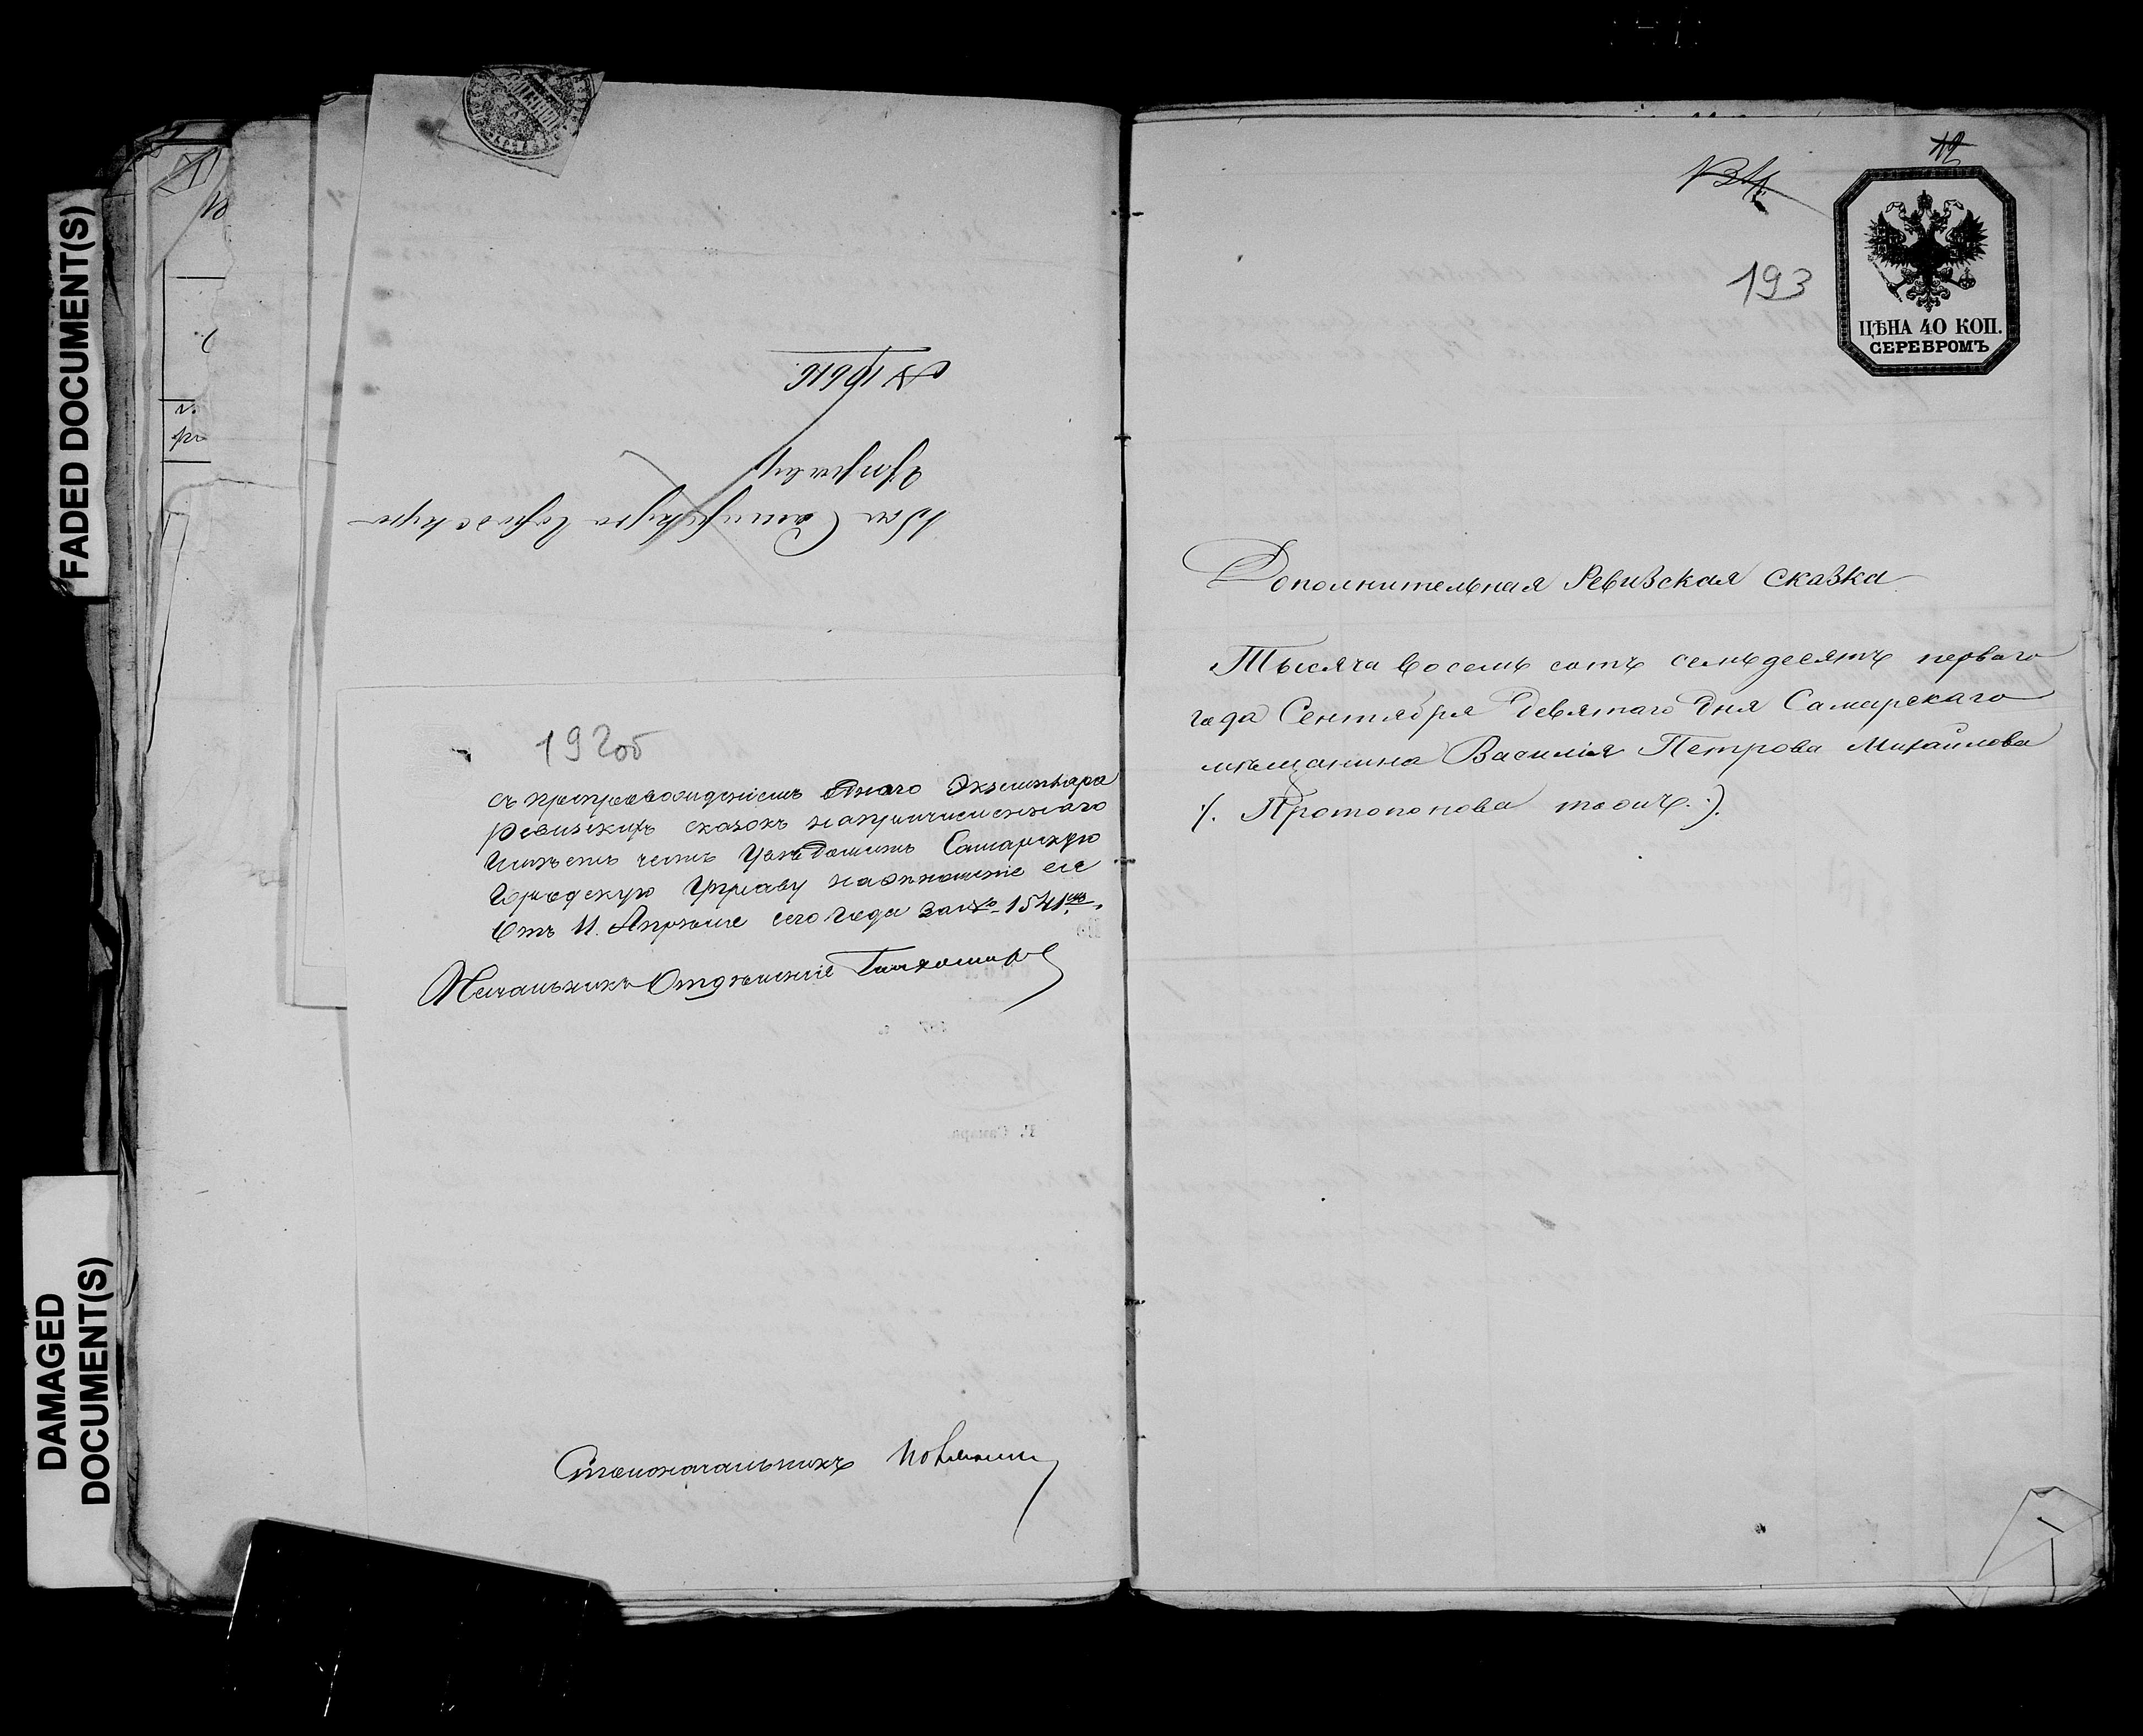 FADED DOCUMENT(S)
DAMAGED
DOCUMENT(S)
Въ Самарскую Городскую
Управу
№ 19616
192 об
съ препровожденіемъ однаго Экземпляра
Ревизскихъ сказокъ на причисленнаго
имѣетъ честь Увѣдомить Самарскую
Городскую Управу на отношеніе ее
Отъ 11. Апрѣля сего Года за № 1541.мъ.
Начальникъ Отдѣленія
Столоначальникъ
12
193
ЦѢНА 40 КОП.
СЕРЕБРОМЪ
Дополнительная Ревизская сказка
Тысяча восемь сотъ семьдесятъ перваго
года Сентября девятаго дня Самарскаго
мѣщанина Василія Петрова Михайлова
/. Протопопова тожъ. /.